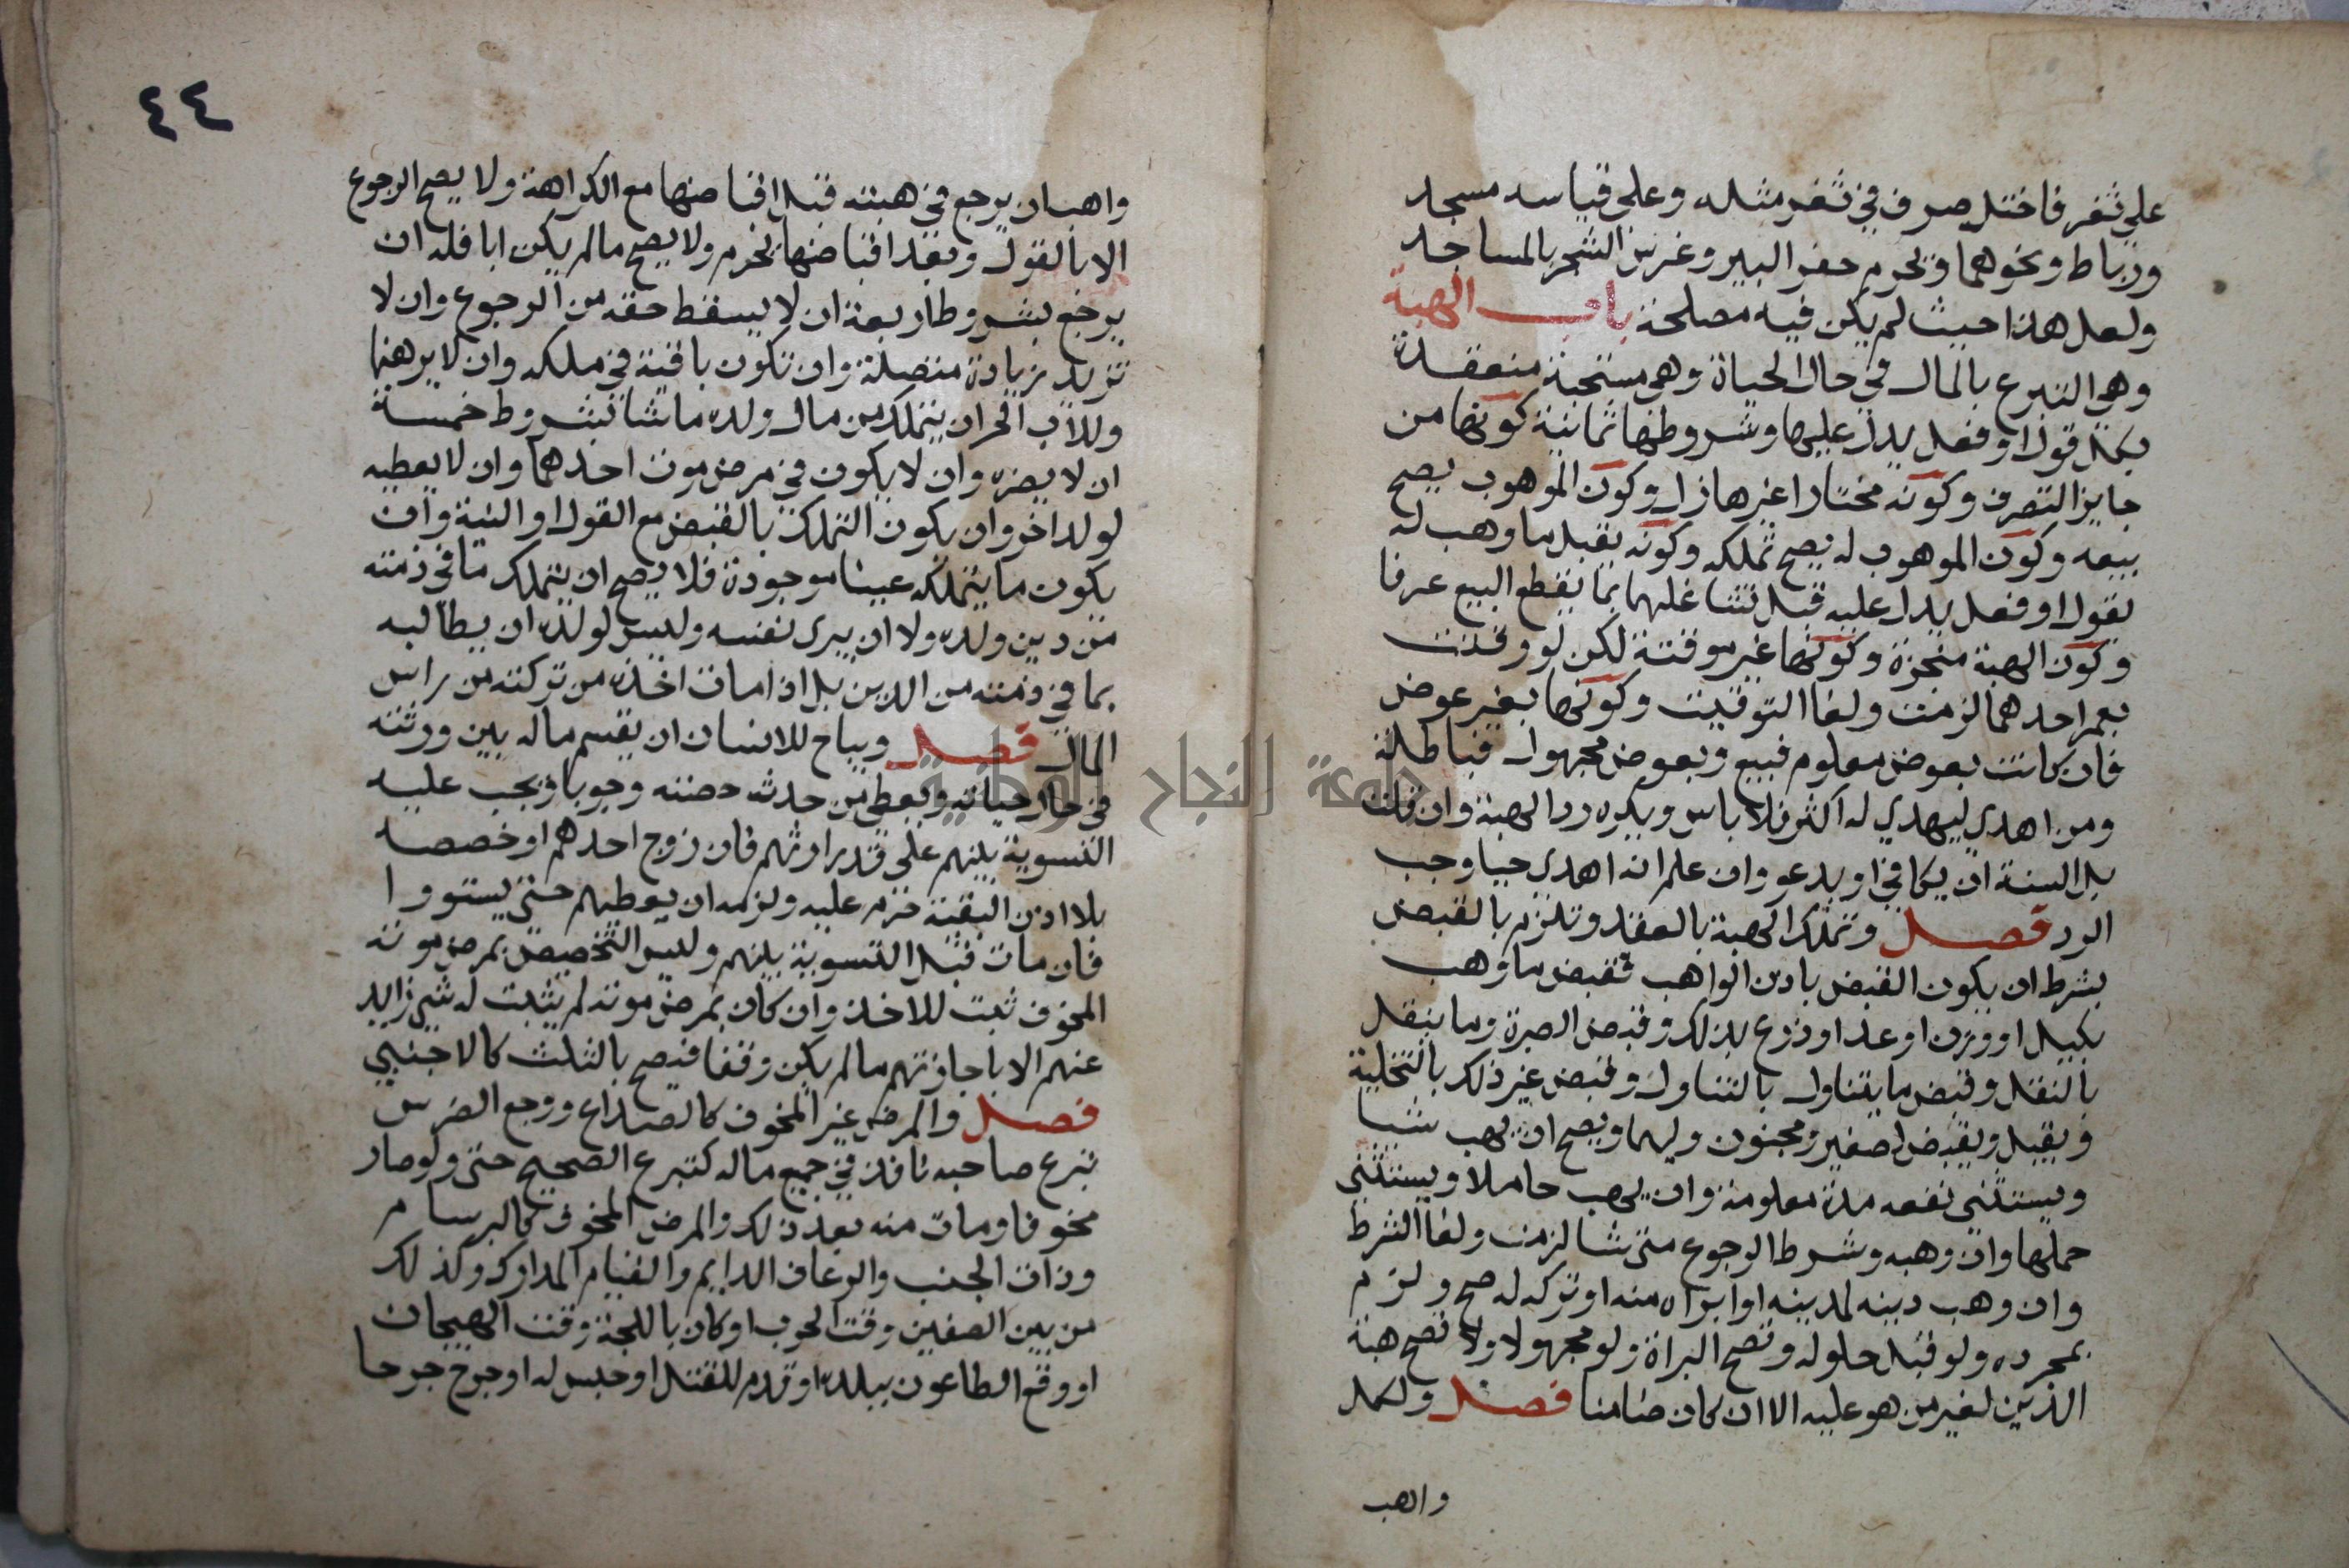 علي ثغر فاختل صرف في ثغر مثله وعلي قياسه مسجد
ورباط ونحوهما ويحرم حفر البير وغرس الشجر بالمساجد
ولعل هذا حيث لم يكن فيه مصلحة باب الهبة
وهي التبرع بالمال في حال الحياة وهي مستحبة منعقدة
بكل قول او فعل يدل عليها وشروطها ثمانية كونها من
جايز التصرف وكونه مختارا غير هازل وكون الموهوب يصح
بيعه وكون الموهوب له يصح تملكه وكونه يقبل ما وهب له
بقول او فعل يدل عليه قبل تشاغلهما بما يقطع البيع عرفا
وكون الهبة منجزة وكونها غير موقتة لكن لو وقتت
بعمر احدهما لزمت ولغا التوقيت وكونها بغير عوض
فان كانت بعوض معلوم فبيع وبعوض مجهول فباطلة
ومن اهدي ليهدي له اكثر فلا باس ويكره رد الهبة وان قلت
بل السنة ان يكافي او يدعو وان علم انه اهدي حيا وجب
الرد فصل وتملك الهبة بالعقد وتلزم بالقبض
بشرط ان يكون القبض باذن الواهب فقبض ما وهب
بكيل او وزن او عد او ذرع بذلك وقبض الصبرة وما ينقل
بالنقل وقبض ما يتناول بالتناول وقبض غير ذلك بالتخلية
ويقبل ويقبض لصغير ومجنون وليهما ويصح ان يهب شيا
ويستثني نفعه مدة معلومة وان يهب حاملا ويستثني
حملها وان وهبه وشرط الرجوع متي شا لزمت ولغا الشرط
وان وهب دينه لمدينه او ابراه منه او تركه له صح ولزم
بمجرده ولو قبل حلوله وتصح البراة ولو مجهولا ولا تصح هبة
الدين لغير من هو عليه الا ان كان ضامنا فصل ولكل
واهب
٤٤
واهب ان يرجع في هبته قبل اقباضها مع الكراهة ولا يصح الرجوع
الا بالقول وبعد اقباضها يحرم ولا يصح مالم يكن ابا فله ان
يرجع بشروط اربعة ان لا يسقط حقه من الرجوع وان لا
تزيد زيادة متصلة وان تكون باقية في ملكه وان لا يرهنها
وللاب الحر ان يتملك من مال ولده ما شا بشروط خمسة
ان لا يضره وان لا يكون في مرض موت احدهما وان لا يعطيه
لولد اخر وان يكون التملك بالقبض مع القول او النية وان
يكون ما يتملكه عينا موجودة فلا يصح ان يتملك ما في ذمته
من دين ولده ولا ان يبري نفسه وليس لولده ان يطالبه
بما في ذمته من الدين بل اذا مات اخذه من تركته من راس
المال فصل ويباح للانسان ان يقسم ماله بين ورثته
في حال حياته ويعطي من حدث حصته وجوبا ويجب عليه
التسوية بينهم علي قدر ارثهم فان زوج احدهم او خصصه
بلا اذن البقية حرم عليه ولزمه ان يعطيهم حتي يستووا
فان مات قبل التسوية بينهم وليس التخصيص بمرض موته
المخوف ثبت للاخذ وان كان بمرض موته لم يثبت له شي زايد
عنهم الا باجازتهم مالم يكن وقفا فيصح بالثلث كالاجنبي
فصل والمرض غير المخوف كالصداع ووجع الضرس
تبرع صاحبه نافذ في جميع ماله كتبرع الصحيح حتي ولو صار
مخوفا ومات منه بعد ذلك والمرض المخوف كالبرسام
وذات الجنب والرعاف الدايم والقيام المتدارك وكذلك
من بين الصفين وقت الحرب او كان باللجة وقت الهيجان
او وقع الطاعون ببلده او قدم للقتل او حبس له او جرح جرحا
جامعة النجاح الوطنية